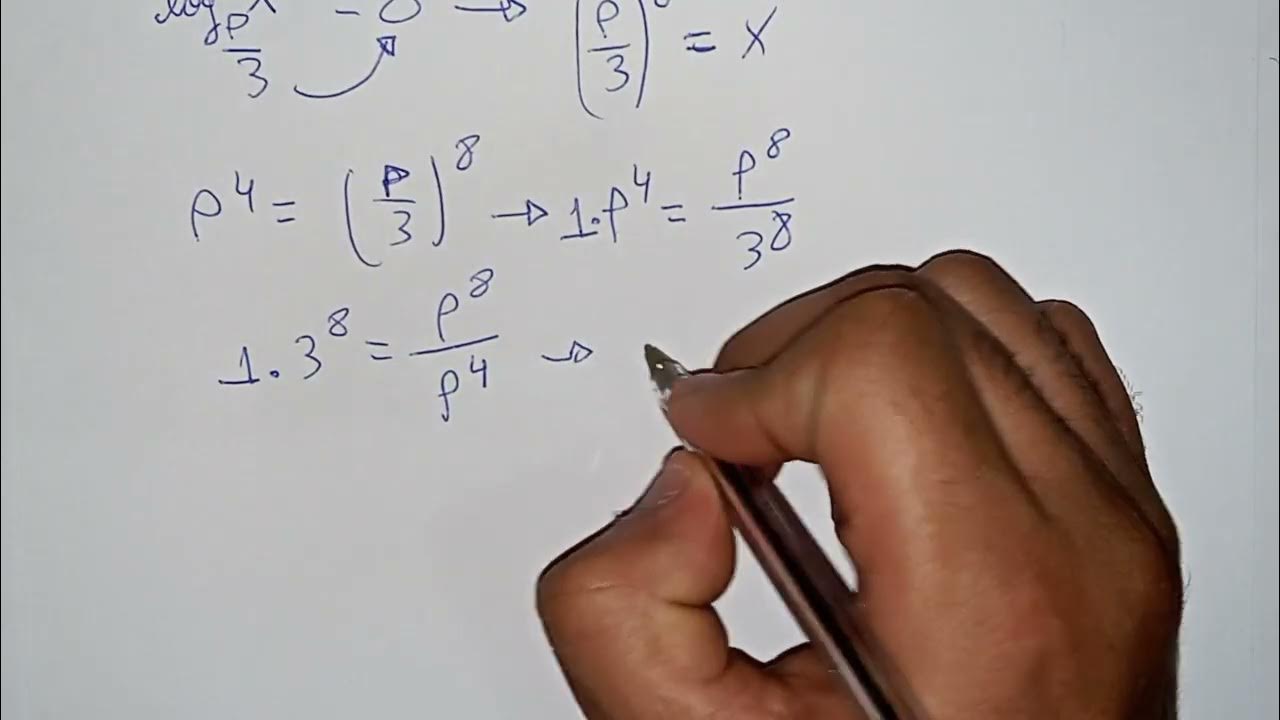 log_{P/3} x = 8 → (P/3)^8 = x
P^4 = (P/3)^8 → 1.P^4 = P^8/3^8
1.3^8 = P^8/P^4 →